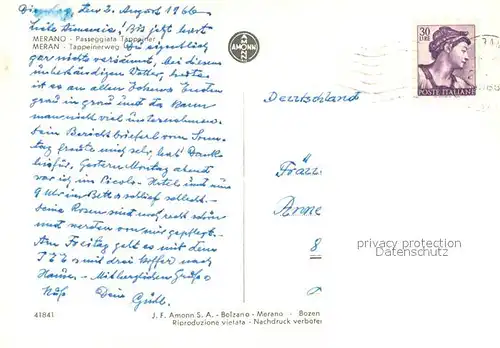 Dienstag, den 2. August 1966
Liebe Annemie! Bis jetzt hast
MERANO - Passeggiata Tappeiner
MERAN - Tappeinerweg
Du eigentlich
gar nichts versäumt, bei diesem
unbeständigen Wetter, heute
ist es an allen Enden
grau in grau und da kann
man nicht viel unternehmen.
Dein Bericht brieferl vom Sonn-
tag freute mich sehr, hab' Dank
hiefür. Gestern Montag abend
war ich im Picolo-Hotel und um
9 Uhr im Bett, schlief schlecht.
Deine Rosen sind noch recht schön
und werden von mir gepflegt.
Am Freitag geht es mit dem
mit drei Koffer nach
Hause. - Mit herzlichen Gruß u.
Kuß Dein
AMONN
30
LIRE
POSTE ITALIANE
Deutschland
Fräu
Anne
8
privacy protection
DatenSchutz
41841
J. F. Amonn S. A. - Bolzano - Merano - Bozen
Riproduzione vietata - Nachdruck verboten